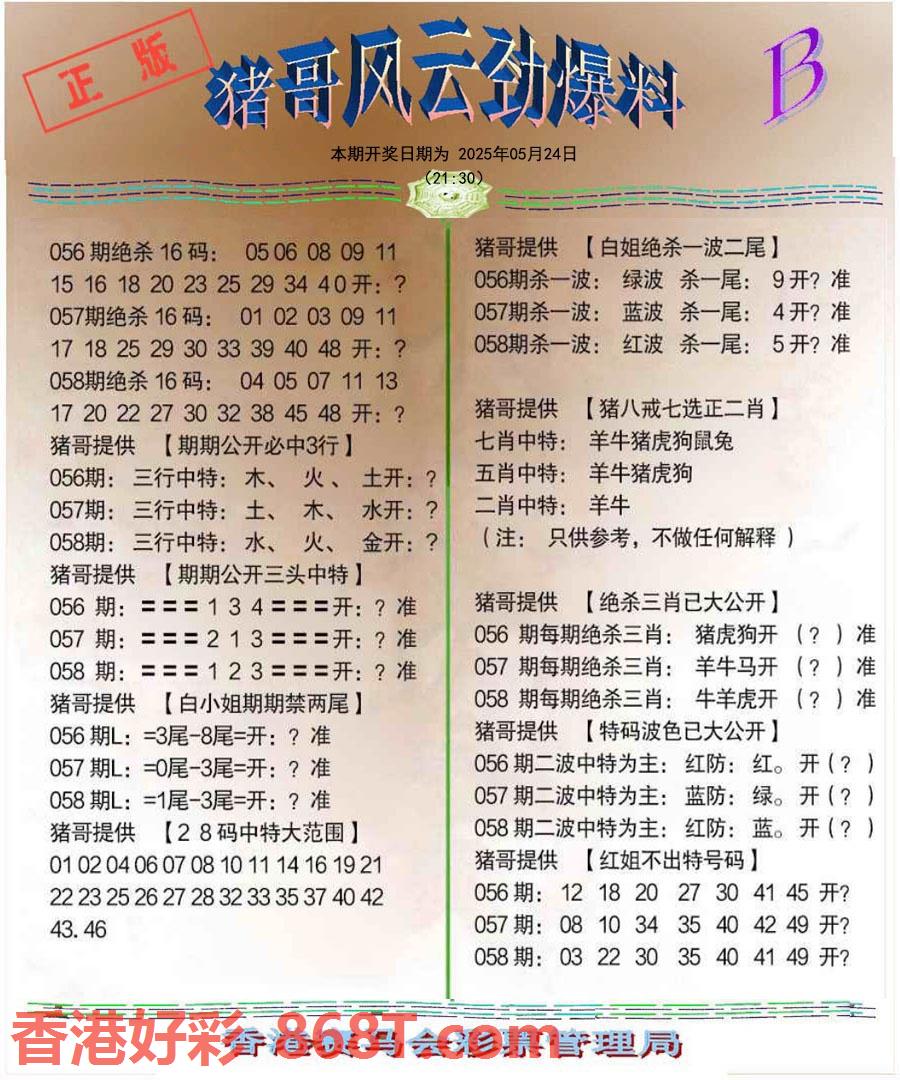 正版
猪哥风云劲爆料
B
本期开奖日期为 2025年05月24日
(21:30)
056期绝杀16码： 05 06 08 09 11
15 16 18 20 23 25 29 34 40开：？
057期绝杀16码： 01 02 03 09 11
17 18 25 29 30 33 39 40 48 开：？
058期绝杀16码： 04 05 07 11 13
17 20 22 27 30 32 38 45 48 开：？
猪哥提供 【期期公开必中3行】
056期： 三行中特： 木、 火、 土开：？
057期： 三行中特： 土、 木、 水开：？
058期： 三行中特： 水、 火、 金开：？
猪哥提供 【期期公开三头中特】
056 期：＝＝＝1 3 4＝＝＝开：？准
057 期：＝＝＝2 1 3＝＝＝开：？准
058 期：＝＝＝1 2 3＝＝＝开：？准
猪哥提供 【白小姐期期禁两尾】
056期L：=3尾-8尾=开：？准
057期L：=0尾-3尾=开：？准
058期L：=1尾-3尾=开：？准
猪哥提供 【28码中特大范围】
01 02 04 06 07 08 10 11 14 16 19 21
22 23 25 26 27 28 32 33 35 37 40 42
43. 46
猪哥提供 【白姐绝杀一波二尾】
056期杀一波： 绿波 杀一尾： 9开？准
057期杀一波： 蓝波 杀一尾： 4开？准
058期杀一波： 红波 杀一尾： 5开？准
猪哥提供 【猪八戒七选正二肖】
七肖中特： 羊牛猪虎狗鼠兔
五肖中特： 羊牛猪虎狗
二肖中特： 羊牛
（注： 只供参考，不做任何解释）
猪哥提供 【绝杀三肖已大公开】
056 期每期绝杀三肖： 猪虎狗开 （？）准
057 期每期绝杀三肖： 羊牛马开 （？）准
058 期每期绝杀三肖： 牛羊虎开 （？）准
猪哥提供 【特码波色已大公开】
056期二波中特为主：红防：红。开（？）
057期二波中特为主：蓝防：绿。开（？）
058期二波中特为主：红防：蓝。开（？）
猪哥提供 【红姐不出特号码】
056期： 12 18 20 27 30 41 45 开？
057期： 08 10 34 35 40 42 49 开？
058期： 03 22 30 35 40 41 49 开？
香港好彩 868T.com
香港赛马会彩票管理局